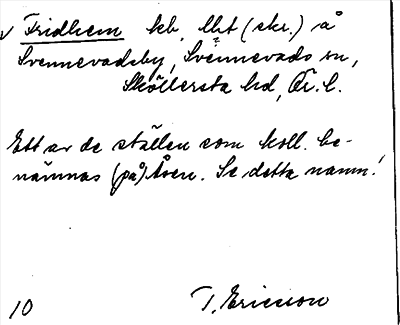 √ Fridhem kb, lht (skr.) å
Svennevadsby, Svennevads sn,
Sköllersta hd, Ör. l.
Ett av de ställen som koll. be-
nämnas (på) Åsen. Se detta namn!
10 T. Ericsson